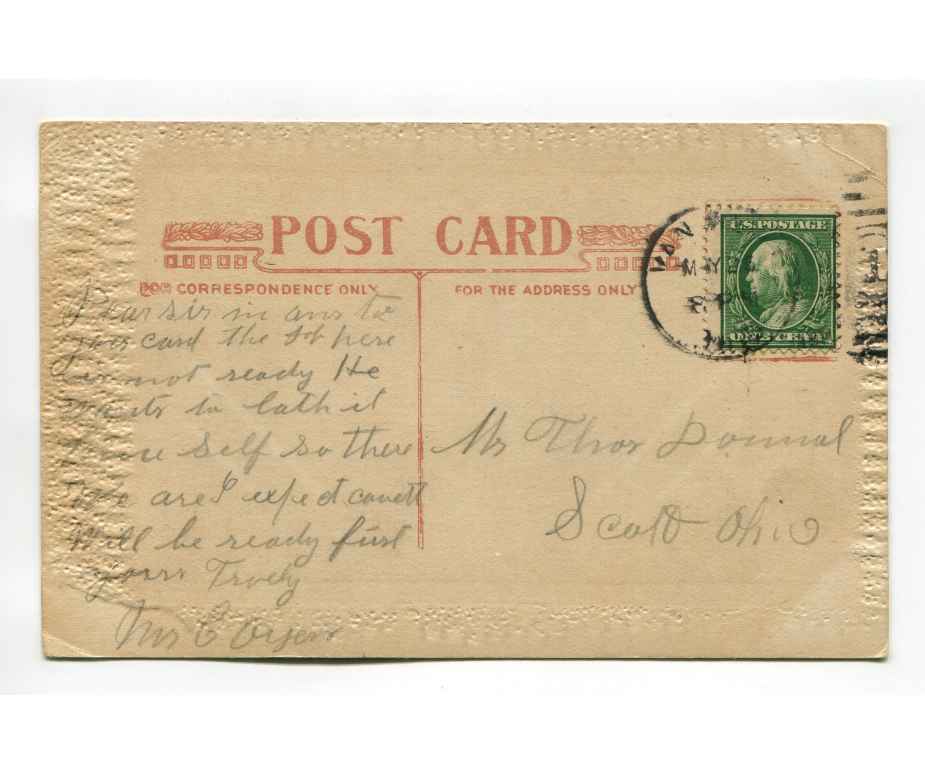 POST CARD
FOR CORRESPONDENCE ONLY
FOR THE ADDRESS ONLY
VAN
MAY
U.S. POSTAGE
ONE CENT
Dear sir in ans to
your card the
not ready He
wants to lath it
Self so there
we are I expect
Will be ready first
yours Truely
Mrs E
Mr Thos
Scott Ohio